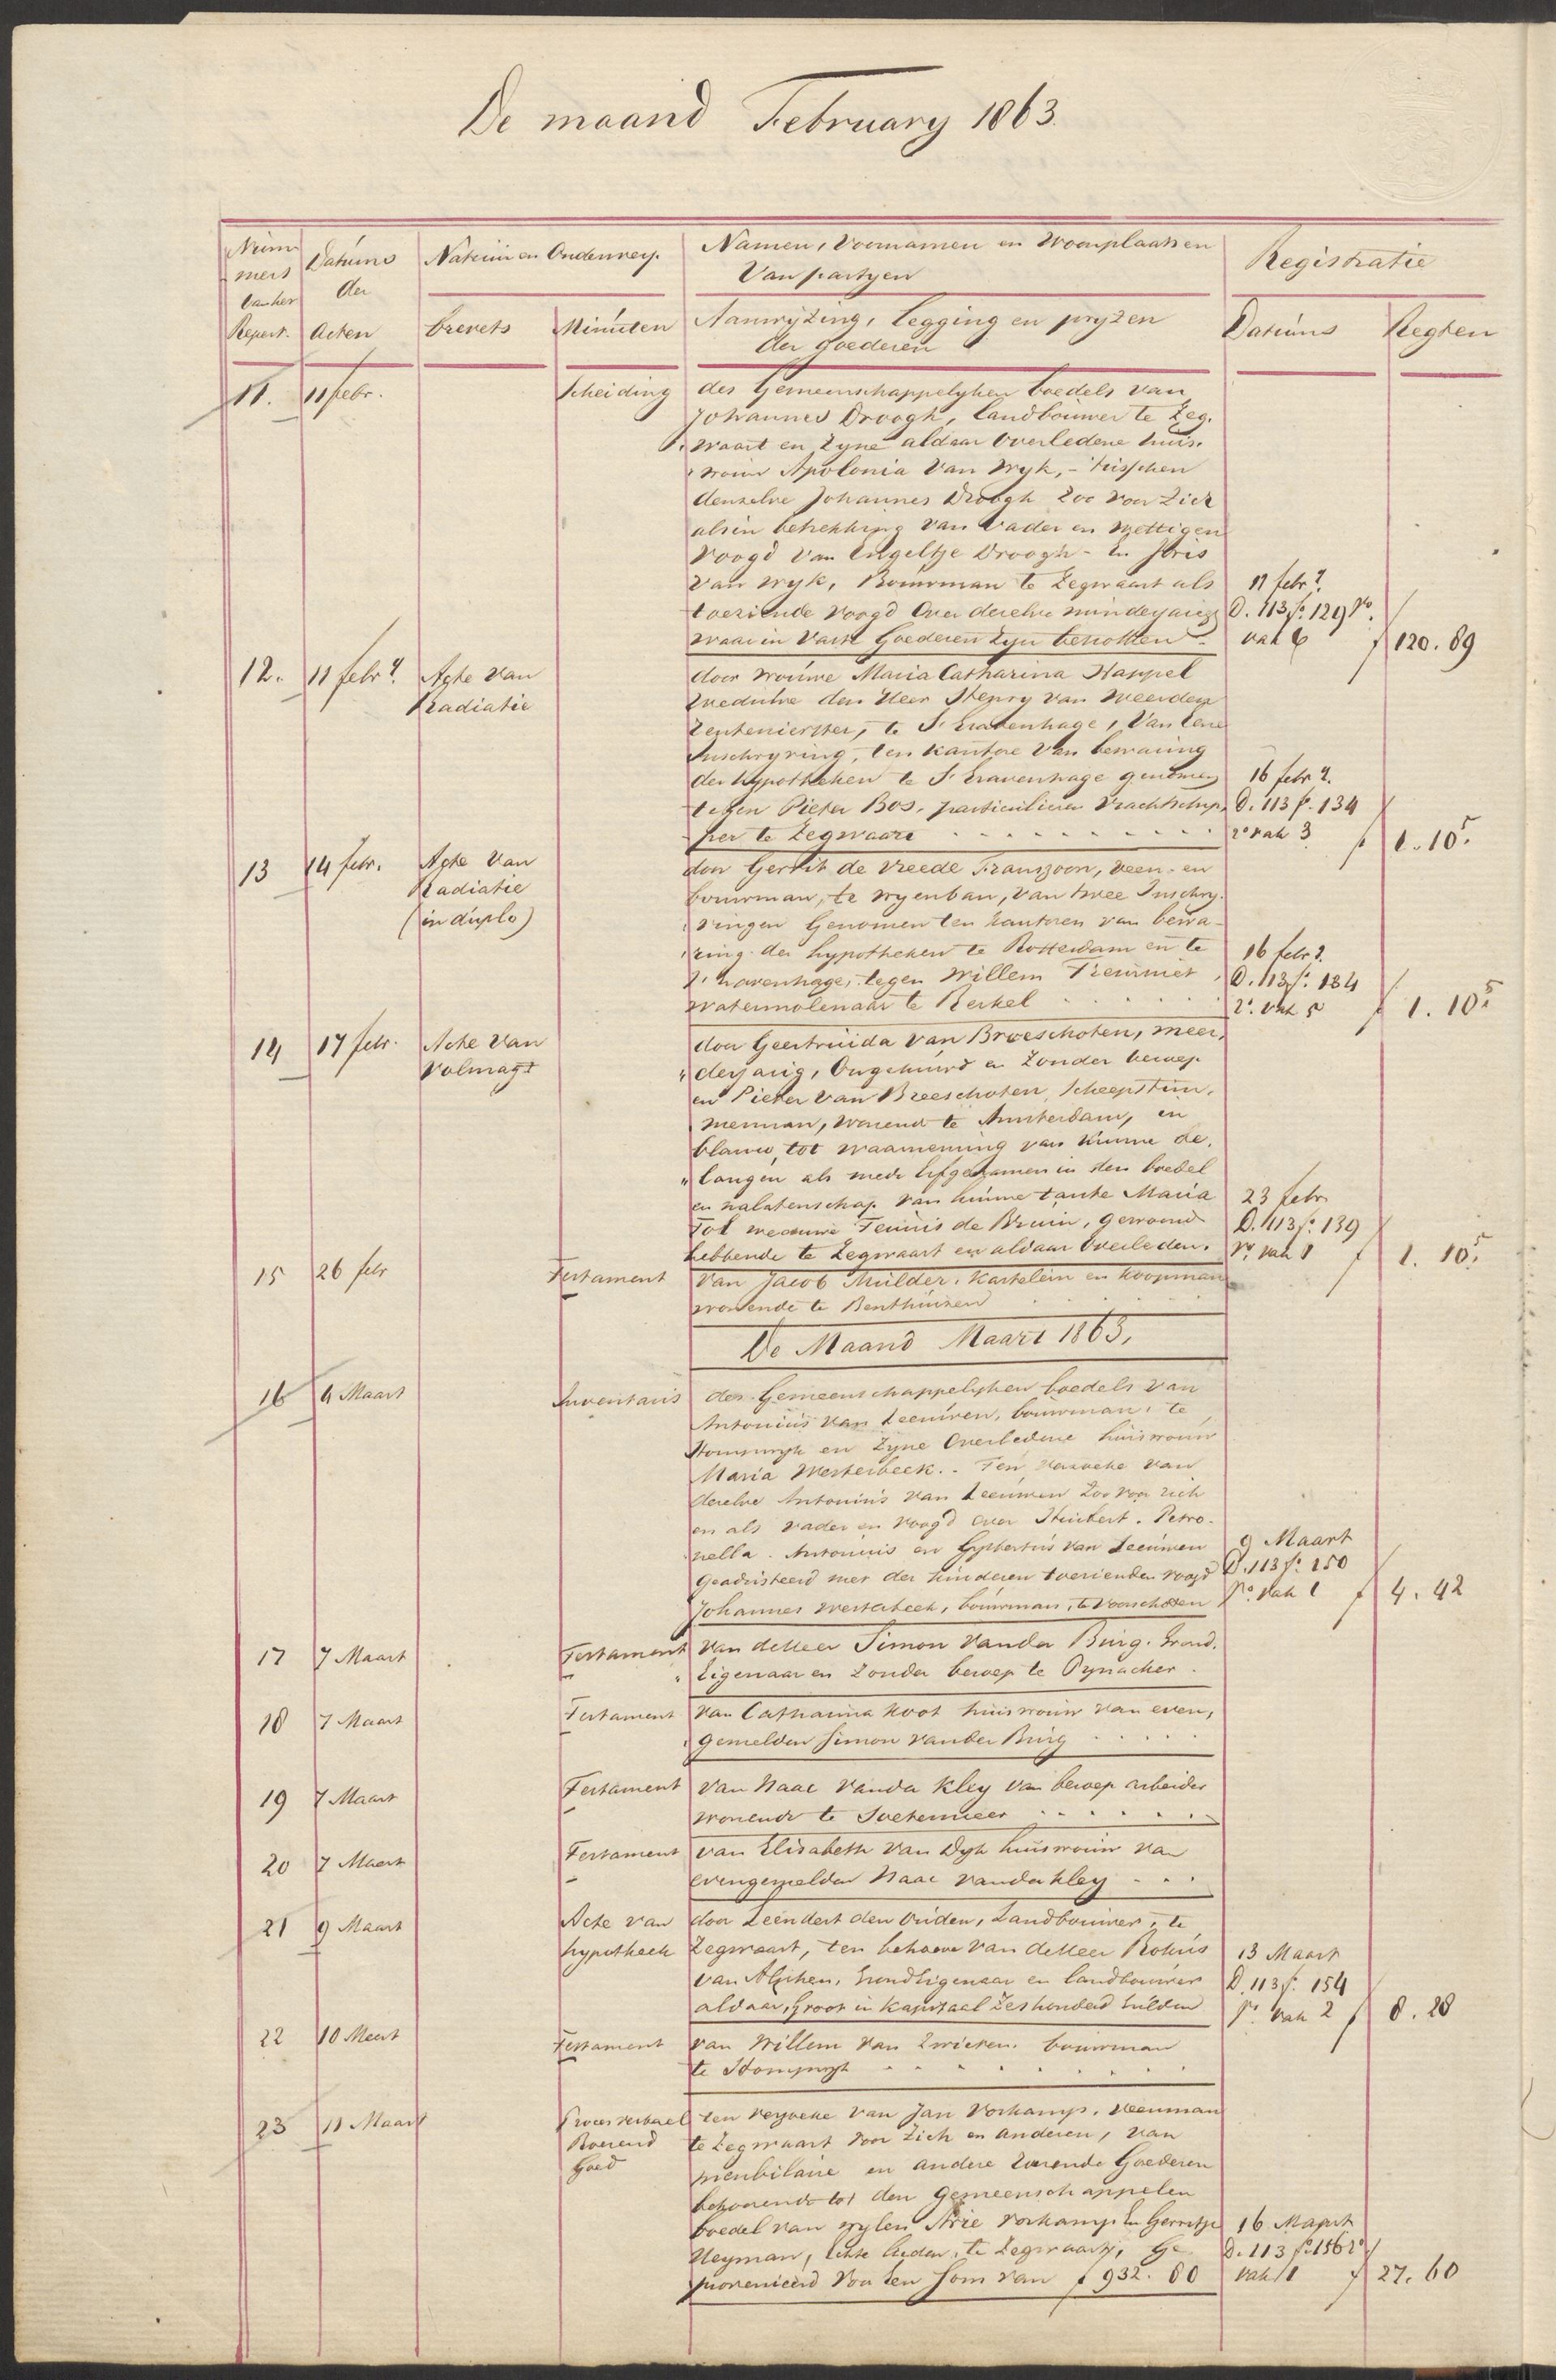 De maand February 1863.
Num
mers
van het
Repert.
Datums
der
Acten
Natuur en Onderwerp.
brevets
Minuten
Namen, Voornamen en Woonplaatsen
Van partyen
Aanwyzing, legging en pryzen
der Goederen
Registratie
Datums
Regten
11.
11 febr.
Scheiding
des Gemeenschappelyken boedels van
Johannes Droogh, landbouwer te Zeg.
waart en Zyne aldaar Overledene huis.
vrouw Apolonia Van Wyk, - tusschen
denzelve Johannes Droogh Zoo voor Zich
als in betrekking van Vader en Wettigen
Voogd van Engeltje Droogh - En Joris
van Wyk, Bouwman te Zegwaart als
toeziende Voogd Over dezelve minderjarige
waarin Vaste Goederen Zyn betrokken -
11 febr.y
D. 113 fo. 129 Vo.
vak 6
f 120. 89
12.
11 febr.y
Agte van
Radiatie
door vrouwe Maria Catharina Happel
weduwe den Heer Henry van Weerden
Zentenierster, te S'Gravenhage, Van Eene
Inschryving, ten kantore Van bewaring
der hypotheken te S'Gravenhage genomen
tegen Pieter Bos, particulieren Vrachtschip,
per te Zegwaart
16 febr.y
D. 113 fo. 134
ro vak 3
f 1. 10.5
13
14 febr.
Agte Van
Radiatie
(in duplo)
door Gerrit de Vreede Franszoon, veen- en
bouwman, te wyenban, van twee Inschry.
vingen Genomen ten kantoren van bewa-
ring der hypotheken te Rotterdam en te
S'Gravenhage, tegen Willem Treurniet,
watermolenaar te Berkel
16 febr.y
D. 113 fo. 134
ro. vak 5
f 1. 10.5
14
17 febr.
Acte van
Volmagt
door Geertruida van Breeschoten, meer,
derjarig, Ongehuwd en Zonder beroep
en Pieter Van Breeschoten, Scheepstim,
merman, wonend te Amsterdam, in
blanco, tot waarneming van hunne be,
langen als mede Erfgenamen in den boedel
en nalatenschap van hunne tante Maria
Tol weduwe Teunis de Bruin, gewoond
hebbende te Zegwaart en aldaar Overleden.
23 febr.
D. 113 fo. 139
Vo. vak 1
f 1. 10.5
15
26 febr
Testament
Van Jacob Mulder, Kastelein en Koopman
wonende te Benthuizen
De Maand Maart 1863.
16
4 Maart
Inventaris
des Gemeenschappelyken boedels van
Antonius van Leeuwen, bouwman, te
Stompwyk en Zyne Overledene huisvrouw
Maria Westerbeek. - Ten verzoeke van
dezelve Antonius van Leeuwen Zoo voor zich
en als vader en Voogd over Huibert, Petro-
nella, Antonius en Gysbertus van Leeuwen
geadsisteerd met der kinderen toezienden voogd
Johannes Westerbeek, bouwman, te Voorschoten
9 Maart
D. 113 fo. 150
Vo. vak 1
f 4. 42
17
7 Maart
Testament
van de Heer Simon Vander Burg, Grond,
Eigenaar en Zonder beroep te Pynacker.
18
7 Maart
Testament
van Catharina Koot huisvrouw van even,
gemelden Simon vander Burg
19
7 Maart
Testament
Van Isaac Vander Kley van beroep arbeider
wonende te Soetermeer
20
7 Maart
Testament
van Elisabeth van Dyk huisvrouw van
evengemelden Isaac vander Kley
21
9 Maart
Acte van
hypotheek
door Leendert den Ouden, Landbouwer, te
Zegwaart, ten behoeve van de Heer Rokus
van Alphen, Grondeigenaar en landbouwer
aldaar, Groot in Kapitaal Zeshonderd Gulden
13 Maart
D. 113 fo. 154
Vo. vak 2
f 8. 28
22
10 Maart
Testament
van Willem van Zwieten, bouwman
te Stompwyk
23
11 Maart
Proces verbaal
Roerend
Goed
ten verzoeke van Jan Vorkamp, Veenman
te Zegwaart voor Zich en anderen, van
meubilaire en andere roerende Goederen
behoorende tot den Gemeenschappelen
boedel van wylen Arie Vorkamp En Gerritje
Heyman, Echte lieden, te Zegwaart, Ge
provenieerd voor een Som van f 932. 80
16 Maart
D. 113 fo. 156 ro.
vak 1
f 27. 60